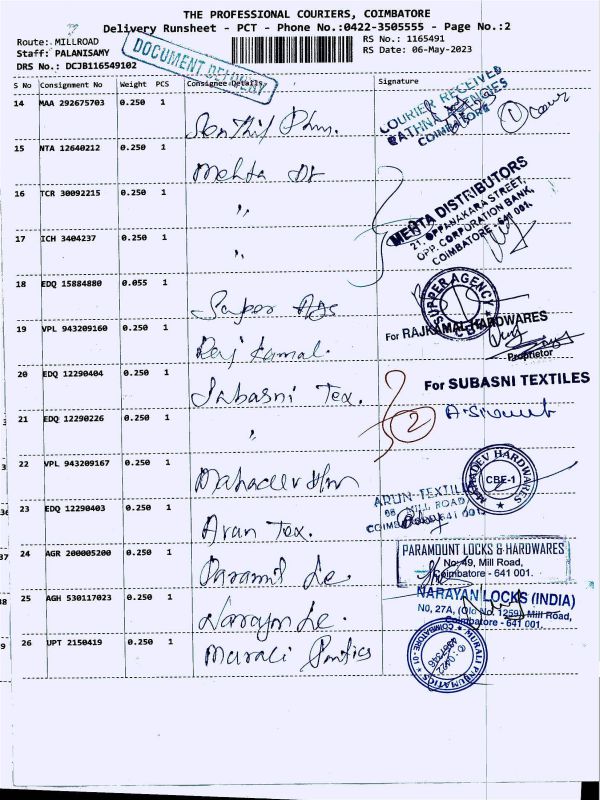 THE PROFESSIONAL COURIERS, COIMBATORE
Delivery Runsheet - PCT - Phone No.:0422-3505555 - Page No.:2
Route: MILLROAD
RS No.: 1165491
Staff: PALANISAMY
RS Date: 06-May-2023
DRS No.: DCJB116549102
DOCUMENT DELIVERY
S No Consignment No Weight PCS Consignee Details Signature
14 MAA 292675703 0.250 1
COURIER RECEIVED
RATHNA AGENCIES
COIMBATORE
15 NTA 12640212 0.250 1 Mehta
16 TCR 30092215 0.250 1 "
MEHTA DISTRIBUTORS
21, OPPANAKARA STREET,
OPP. CORPORATION BANK,
COIMBATORE - 641 001.
17 ICH 3404237 0.250 1 "
18 EDQ 15884880 0.055 1
SUPPER AGENCY
CBE
19 VPL 943209160 0.250 1 Raj Kamal.
For RAJKAMAL HARDWARES
Proprietor
20 EDQ 12290404 0.250 1 Subasni Tex.
For SUBASNI TEXTILES
21 EDQ 12290226 0.250 1 "
2
22 VPL 943209167 0.250 1 Mahadev
MAHADEV HARDWARES
CBE-1
23 EDQ 12290403 0.250 1 Arun Tex.
ARUN TEXTILE
MILL ROAD
24 AGR 200005200 0.250 1
PARAMOUNT LOCKS & HARDWARES
No: 49, Mill Road,
Coimbatore - 641 001.
25 AGH 530117023 0.250 1 Narayan
NARAYAN LOCKS (INDIA)
NO, 27A, (Old No. 1259) Mill Road,
Coimbatore - 641 001.
26 UPT 2150419 0.250 1 Murali
MURALI PNEUMATICS
COIMBATORE-01